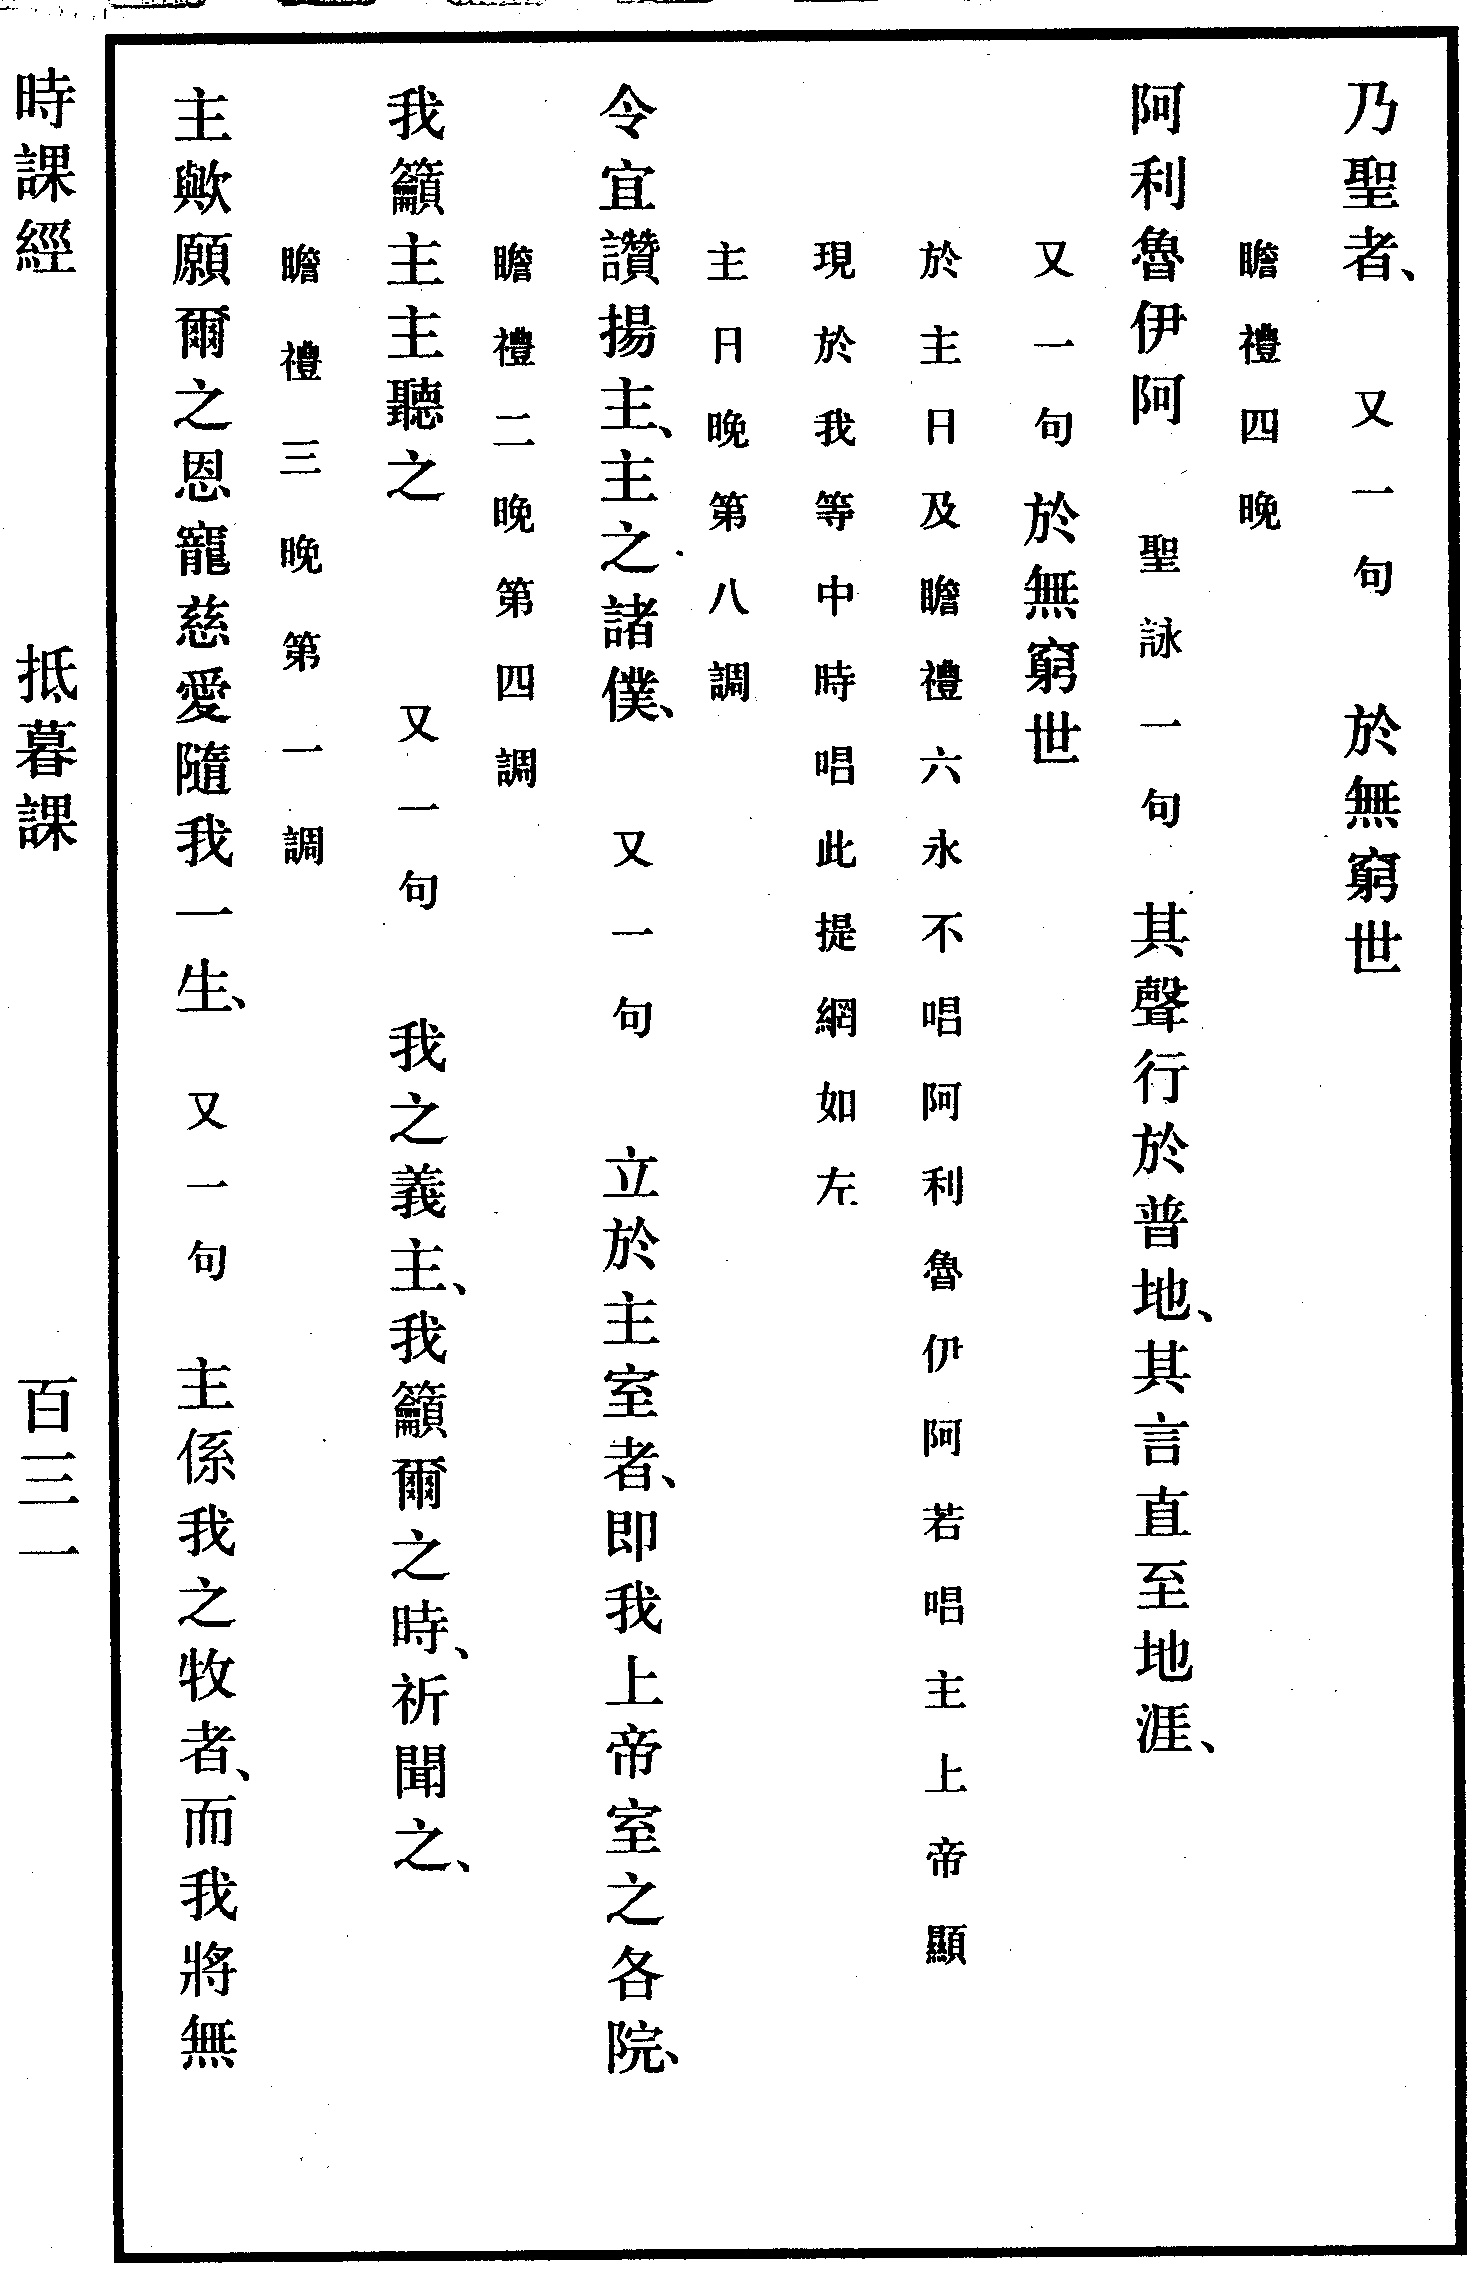 乃聖者、 又一句 於無窮世
瞻禮四晚
阿利魯伊阿 聖詠一句 其聲行於普地、其言直至地涯、
又一句 於無窮世
於主日及瞻禮六永不唱阿利魯伊阿若唱主上帝顯
現於我等中時唱此提網如左
主日晚第八調
令宜讚揚主、主之諸僕、 又一句 立於主室者、即我上帝室之各院、
瞻禮二晚第四調
我籲主主聽之 又一句 我之義主、我籲爾之時、祈聞之、
瞻禮三晚第一調
主歟願爾之恩寵慈愛隨我一生、 又一句 主係我之牧者、而我將無
時課經 抵暮課 百三一